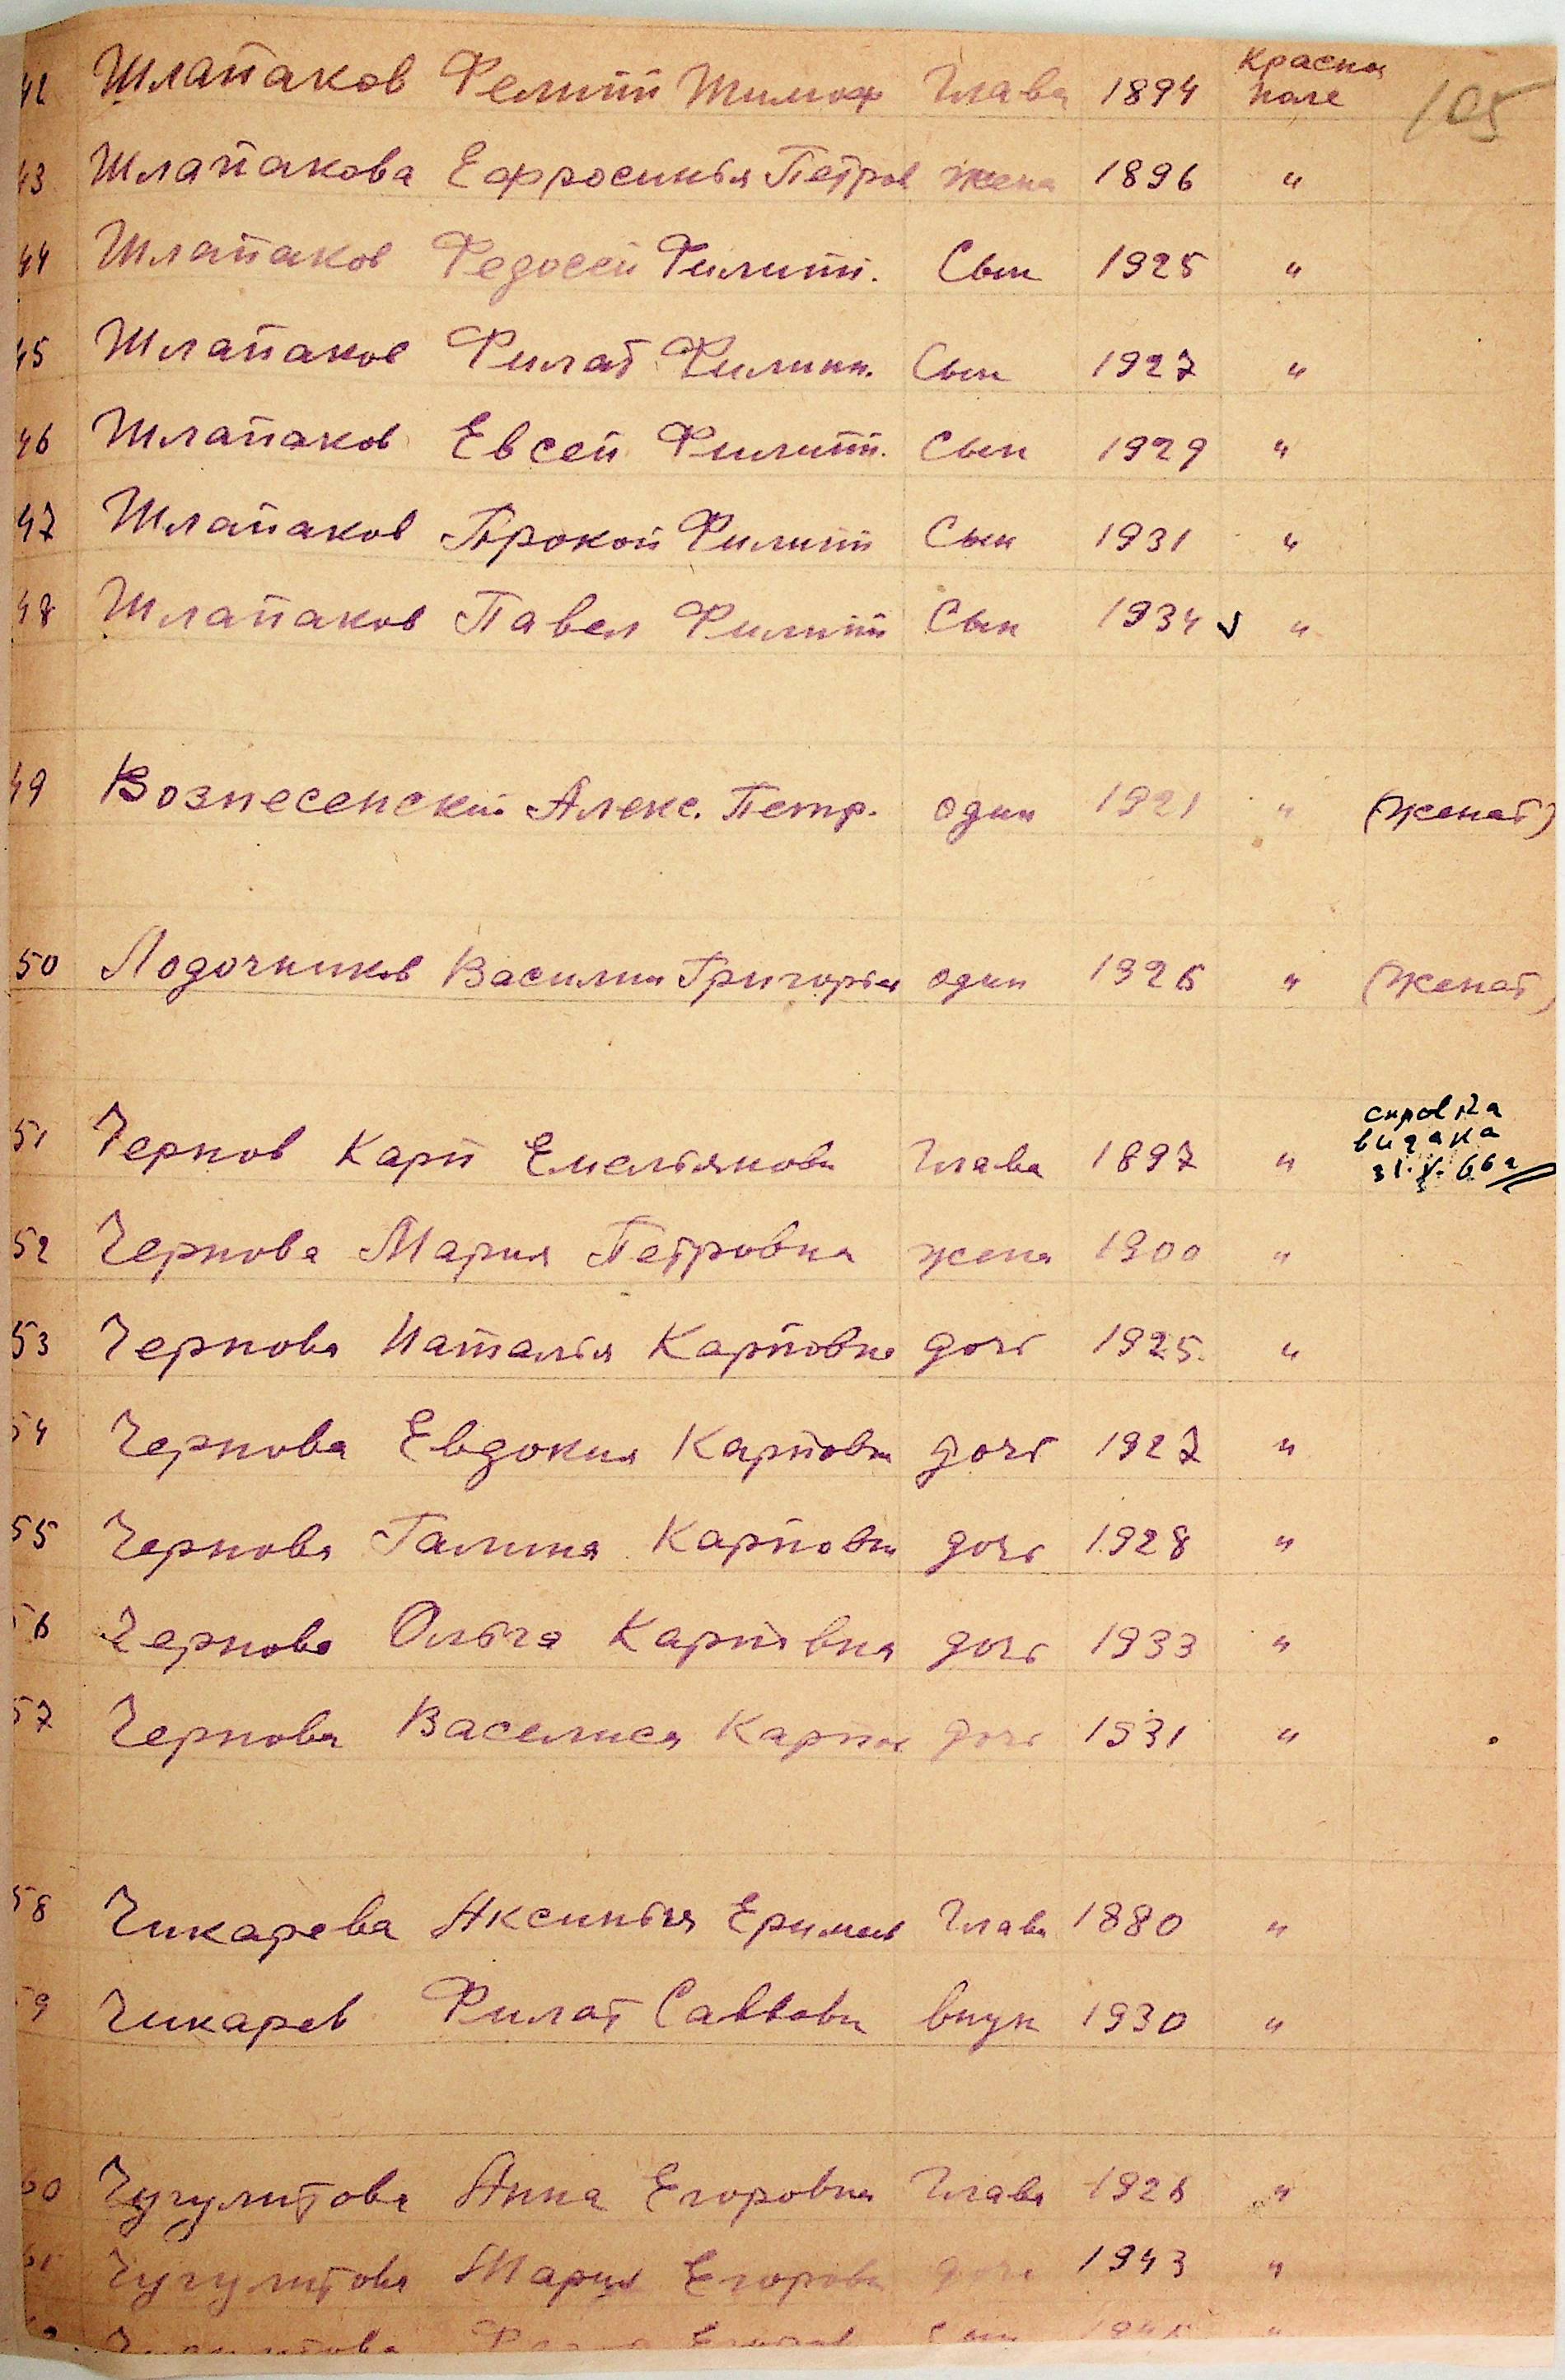 42 Шлапаков Филипп Тимоф Глава 1894 Красная поле 105
43 Шлапакова Ефросинья Петров жена 1896 "
44 Шлапаков Федосей Филипп. Сын 1925 "
45 Шлапаков Филат Филипп. Сын 1927 "
46 Шлапаков Евсей Филипп. Сын 1929 "
47 Шлапаков Прокоп Филипп Сын 1931 "
48 Шлапаков Павел Филипп Сын 1934 "
49 Вознесенский Алекс. Петр. один 1921 " (женат)
50 Лодочников Василий Григорьев один 1926 " (женат)
51 Чернов Карп Емельянови Глава 1897 "
видана
31.V.66г
52 Чернова Мария Петровна жена 1900 "
53 Чернова Наталья Карповна дочь 1925. "
54 Чернова Евдокия Карповн дочь 1927 "
55 Чернова Галина Карповн дочь 1928 "
56 Чернова Ольга Карповна дочь 1933 "
57 Чернова Василиса Карпов дочь 1931 "
58 Чикарева Аксинья Глава 1880 "
59 Чикарев Филат Саввови внук 1930 "
60 Чугулитова Анна Егоровна Глава 1926 "
61 Чугулитова Мария Егоровн дочь 1943 "